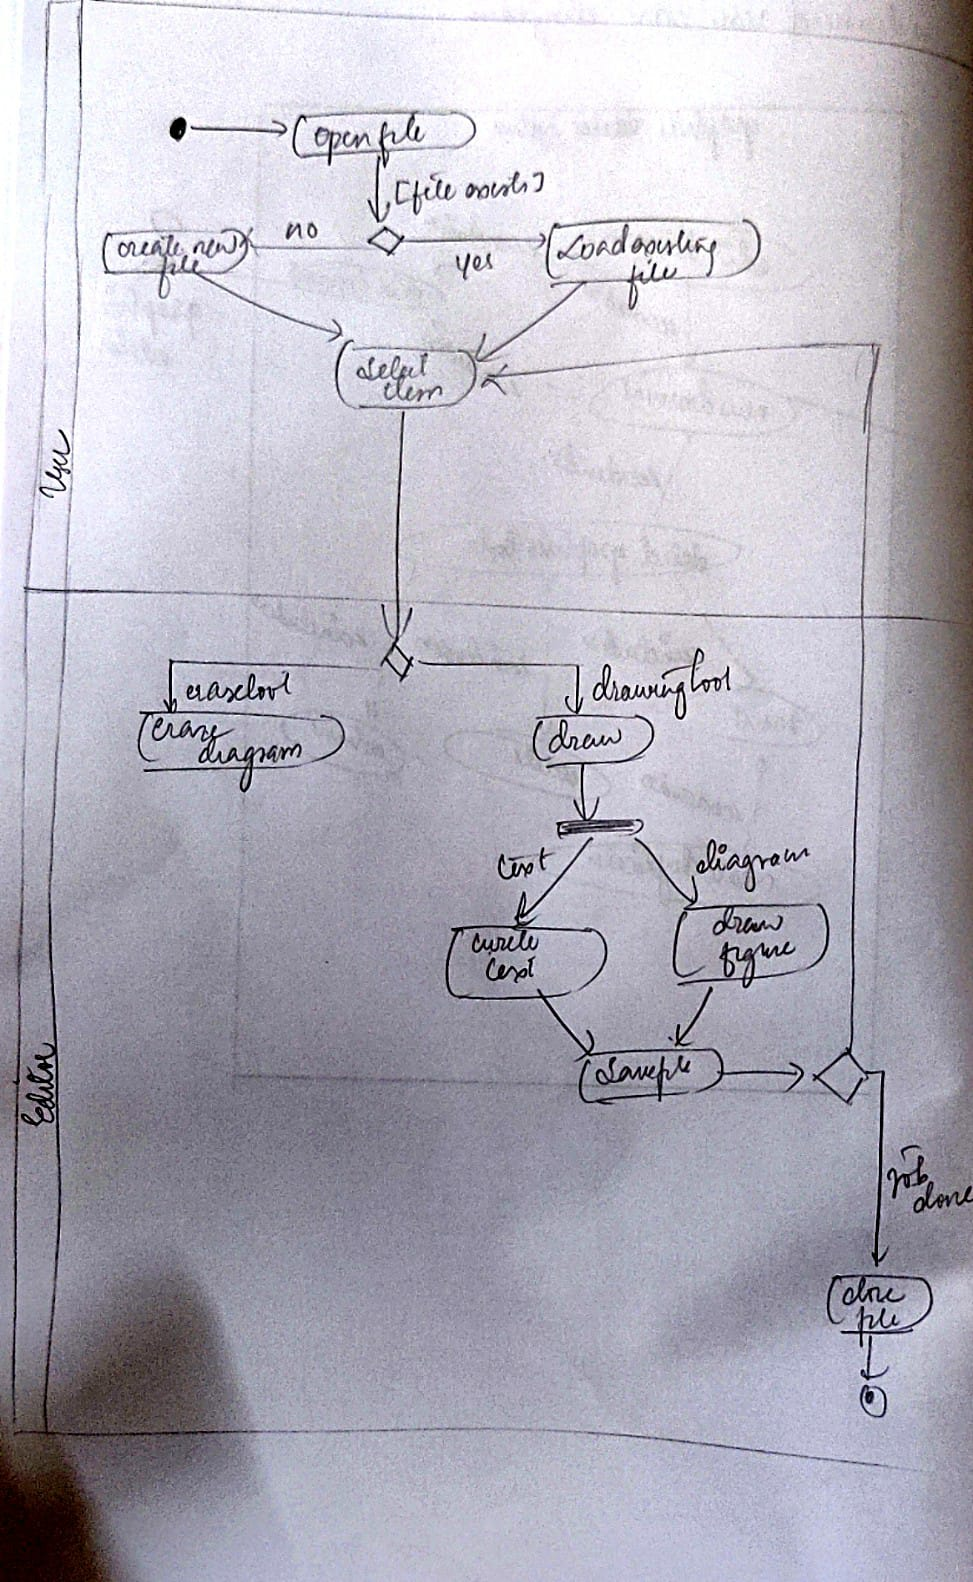 open file
[file exists]
no
yes
create new
file
Load existing
file
select
item
User
erase tool
drawing tool
erase
diagram
draw
text
diagram
write
text
draw
figure
Save file
Editor
job
done
close
file